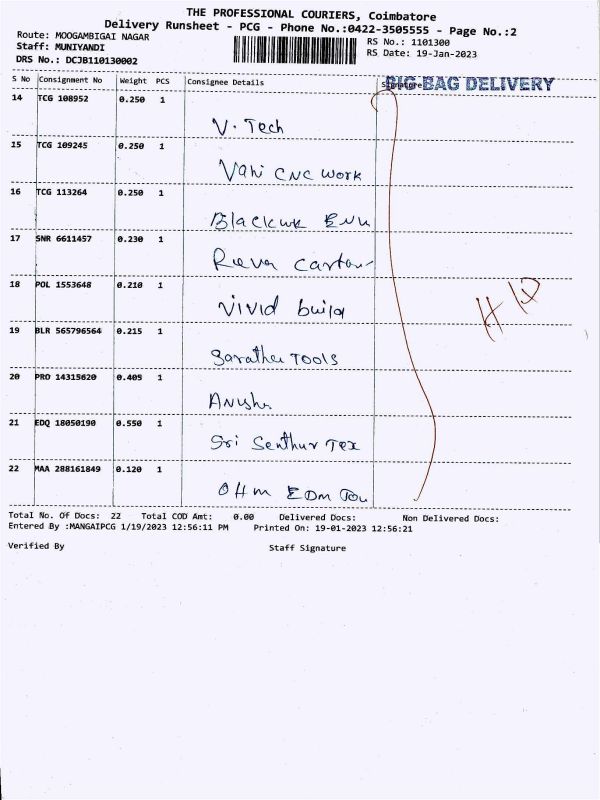 THE PROFESSIONAL COURIERS, Coimbatore
Delivery Runsheet - PCG - Phone No.:0422-3505555 - Page No.:2
Route: MOOGAMBIGAI NAGAR
RS No.: 1101300
Staff: MUNIYANDI
RS Date: 19-Jan-2023
DRS No.: DCJB110130002
S No Consignment No Weight PCS Consignee Details Signature BIG BAG DELIVERY
14 TCG 108952 0.250 1
V. Tech
15 TCG 109245 0.250 1
Vahi CNC Work
16 TCG 113264 0.250 1
17 SNR 6611457 0.230 1
18 POL 1553648 0.210 1
Vivid build
19 BLR 565796564 0.215 1
Tools
20 PRO 14315620 0.405 1
21 EDQ 18050190 0.550 1
Sri Senthur Tex
22 MAA 288161849 0.120 1
OHm EDM
Total No. Of Docs: 22 Total COD Amt: 0.00 Delivered Docs: Non Delivered Docs:
Entered By :MANGAIPCG 1/19/2023 12:56:11 PM Printed On: 19-01-2023 12:56:21
Verified By Staff Signature